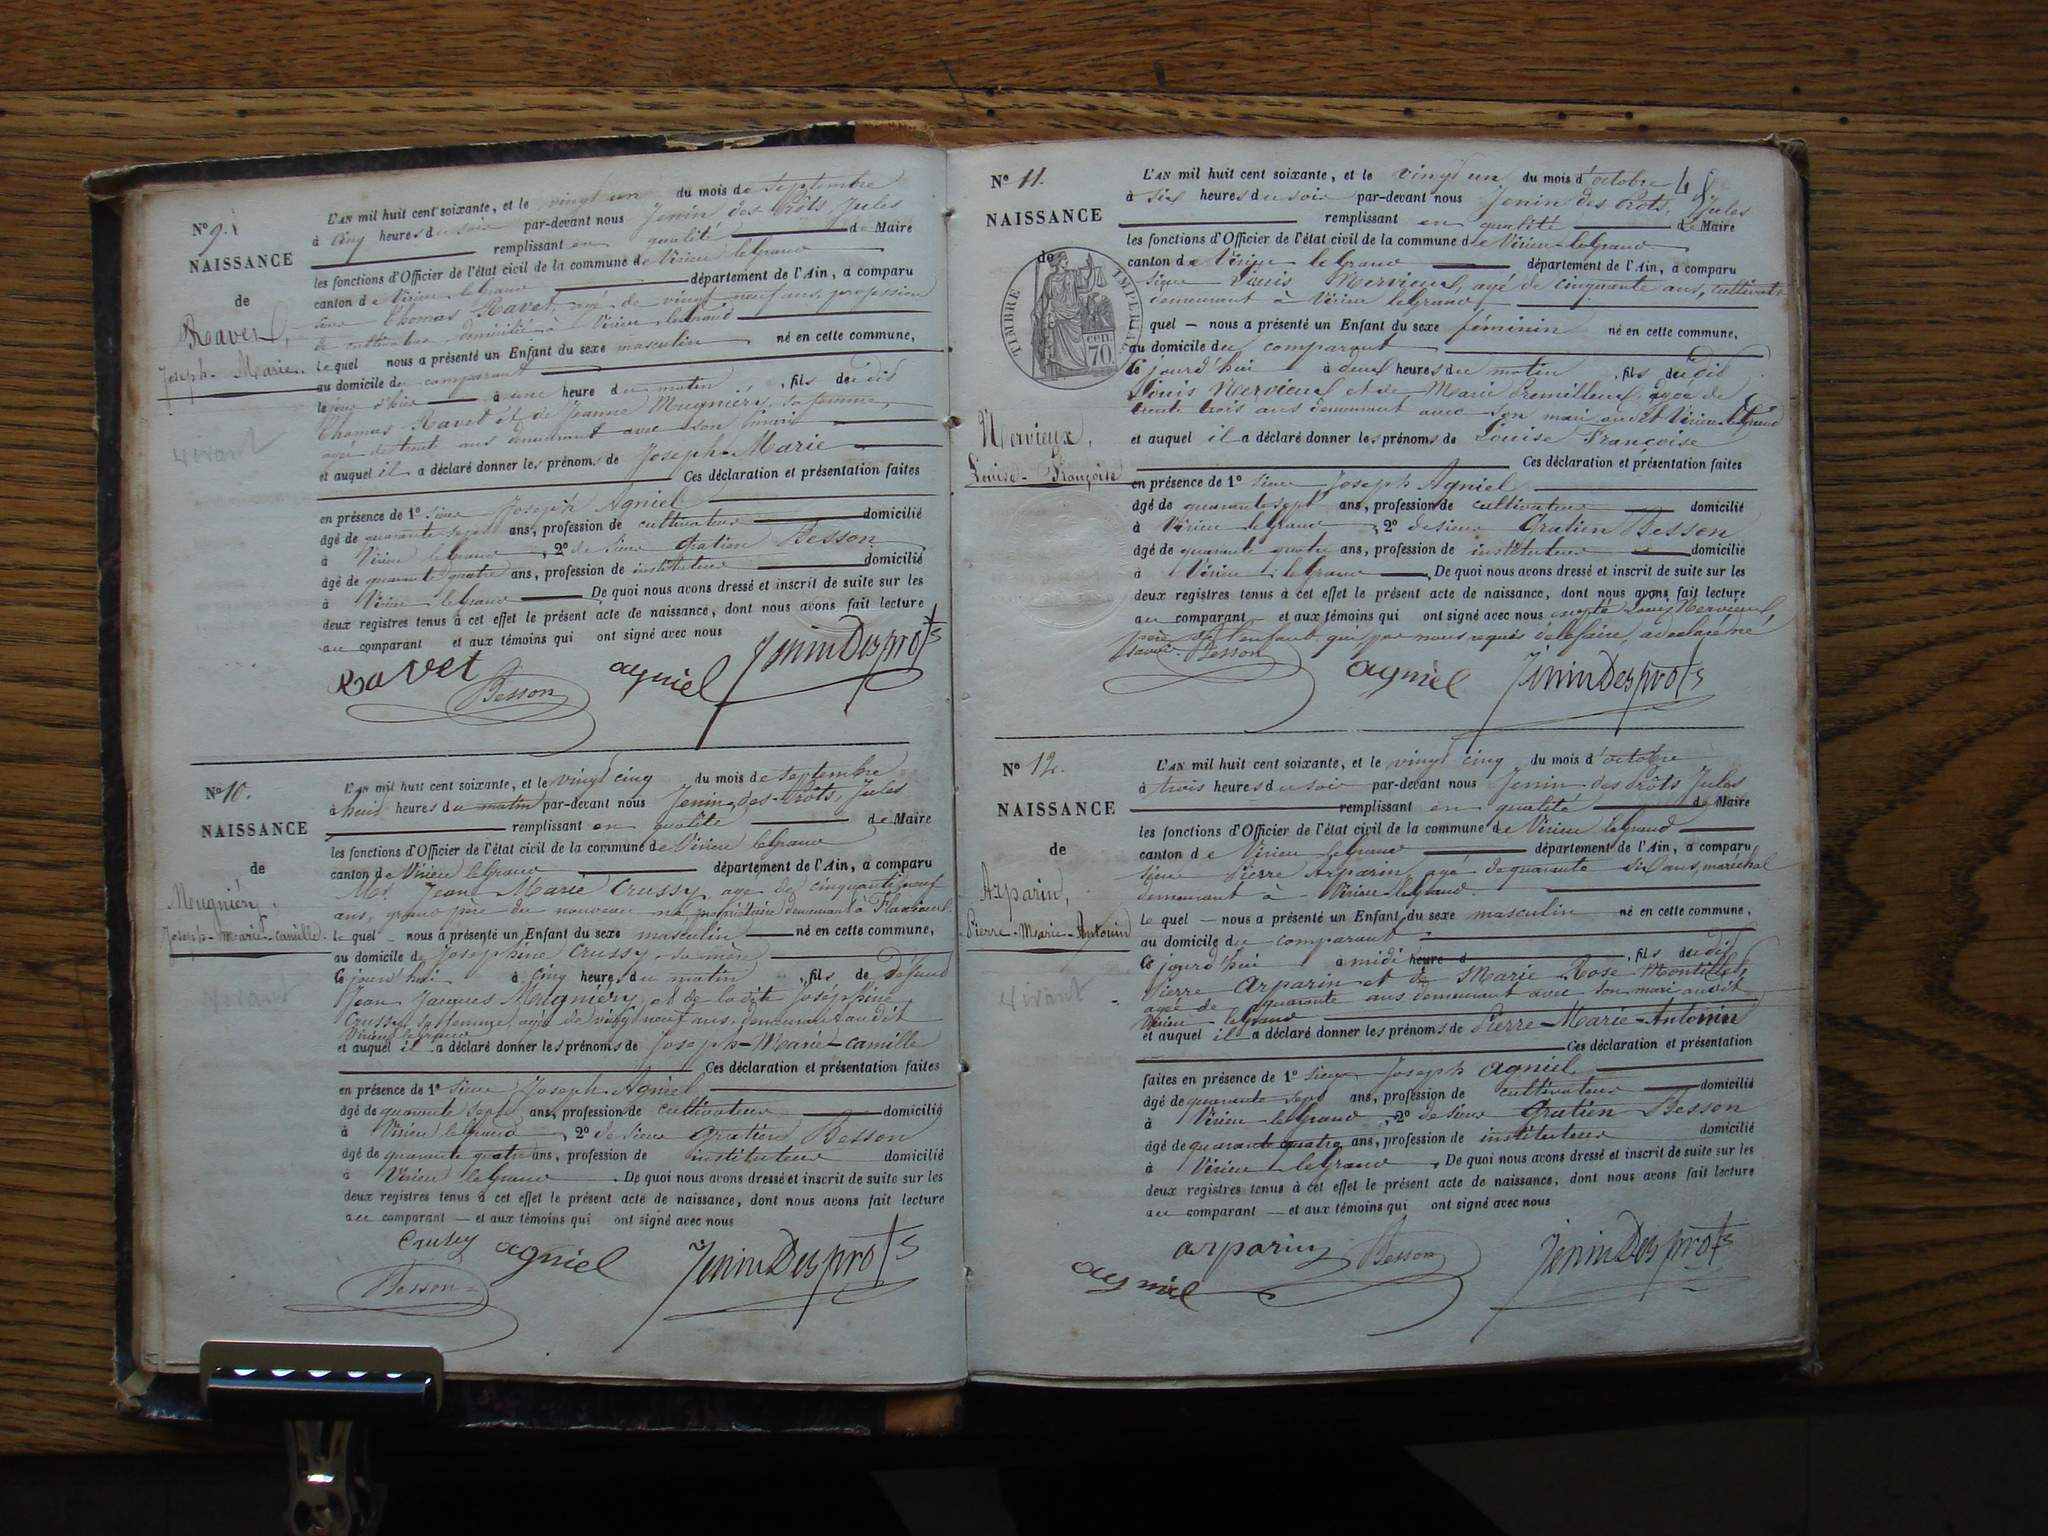 N° 9.
NAISSANCE
de
Ravet,
Joseph-Marie.
vivant
L'AN mil huit cent soixante, et le vingt un du mois de septembre
à cinq heures du soir par-devant nous Jenin des Prôts, Jules
remplissant en qualité de Maire
les fonctions d'Officier de l'état civil de la commune de Virieu le Grand
canton de Virieu le Grand département de l'Ain, a comparu
sieur Thomas Ravet, agé de vingt neuf ans, profession
de cultivateur domicilié à Virieu le Grand
Le quel nous a présenté un Enfant du sexe masculin né en cette commune,
au domicile du comparant
le jour d'hier à une heure du matin, fils du dit
Thomas Ravet et de Jeanne Mugniéry, sa femme,
agée de trente ans demeurant avec son mari
et auquel il a déclaré donner les prénoms de Joseph-Marie
Ces déclaration et présentation faites
en présence de 1° sieur Joseph Agniel
âgé de quarante sept ans, profession de cultivateur domicilié
à Virieu le Grand, 2° de sieur Gratien Besson
âgé de quarante quatre ans, profession de instituteur domicilié
à Virieu le Grand De quoi nous avons dressé et inscrit de suite sur les
deux registres tenus à cet effet le présent acte de naissance, dont nous avons fait lecture
au comparant et aux témoins qui ont signé avec nous
Ravet Besson agniel JeninDesprots
N° 10.
NAISSANCE
de
Mugniéry,
Joseph-Marie-Camille.
vivant
L'AN mil huit cent soixante, et le vingt cinq du mois de septembre
à huit heures du matin par-devant nous Jenin-des-Prôts, Jules
remplissant en qualité de Maire
les fonctions d'Officier de l'état civil de la commune de Virieu le Grand
canton de Virieu le Grand département de l'Ain, a comparu
Mr. Jean Marie Crussy, agé de cinquante neuf
ans, grand père du nouveau né, propriétaire demeurant à Flaxieu.
Le quel nous a présenté un Enfant du sexe masculin né en cette commune,
au domicile de Joséphine Crussy sa mère
Ce jourd'hui à cinq heures du matin, fils de défunt
Jean Jacques Mugniéry, et de la dite Joséphine
Crussy, sa femme, agée de vingt neuf ans, demeurant audit
Virieu le Grand
et auquel il a déclaré donner les prénoms de Joseph-Marie-Camille
Ces déclaration et présentation faites
en présence de 1° sieur Joseph Agniel
âgé de quarante sept ans, profession de cultivateur domicilié
à Virieu le Grand, 2° de sieur Gratien Besson
âgé de quarante quatre ans, profession de instituteur domicilié
à Virieu le Grand. De quoi nous avons dressé et inscrit de suite sur les
deux registres tenus à cet effet le présent acte de naissance, dont nous avons fait lecture
au comparant et aux témoins qui ont signé avec nous
Crussy agniel JeninDesprots
Besson
48
N° 11.
NAISSANCE
de
TIMBRE IMPERIAL
70 cen
Mervieux,
Louise-Françoise
L'AN mil huit cent soixante, et le vingt un du mois d'octobre
à six heures du soir par-devant nous Jenin des Prôts, Jules
remplissant en qualité de Maire
les fonctions d'Officier de l'état civil de la commune de Virieu-le Grand
canton de Virieu le Grand département de l'Ain, a comparu
sieur Louis Mervieux, agé de cinquante ans, cultivateur
demeurant à Virieu le Grand,
quel nous a présenté un Enfant du sexe féminin né en cette commune,
au domicile du comparant
Ce jourd'hui à deux heures du matin, fils du dit
Louis Mervieux et de Marie Premilleux, agée de
trente trois ans demeurant avec son mari audit Virieu le Grand
et auquel il a déclaré donner les prénoms de Louise Françoise
Ces déclaration et présentation faites
en présence de 1° sieur Joseph Agniel
âgé de quarante sept ans, profession de cultivateur domicilié
à Virieu le Grand, 2° de sieur Gratien Besson
âgé de quarante quatre ans, profession de instituteur domicilié
à Virieu le Grand De quoi nous avons dressé et inscrit de suite sur les
deux registres tenus à cet effet le présent acte de naissance, dont nous avons fait lecture
au comparant et aux témoins qui ont signé avec nous excepté Louis Mervieux,
père de l'enfant, qui, par nous requis de le faire, a déclaré ne
savoir. Besson agniel JeninDesprots
N° 12.
NAISSANCE
de
Arparin,
Pierre-Marie-Antonin
vivant
L'AN mil huit cent soixante, et le vingt cinq du mois d'octobre
à trois heures du soir par-devant nous Jenin des Prôts Jules
remplissant en qualité de Maire
les fonctions d'Officier de l'état civil de la commune de Virieu le Grand
canton de Virieu-le Grand département de l'Ain, a comparu
sieur Pierre Arparin, agé de quarante six ans, maréchal
demeurant à Virieu-le Grand.
Le quel nous a présenté un Enfant du sexe masculin né en cette commune,
au domicile du comparant
Ce jourd'hui à midi heure d, fils du dit
Pierre Arparin et de Marie Rose Montillet,
agée de quarante ans demeurant avec son mari audit
Virieu-le Grand
et auquel il a déclaré donner les prénoms de Pierre-Marie-Antonin
Ces déclaration et présentation
faites en présence de 1° sieur Joseph Agniel,
âgé de quarante sept ans, profession de cultivateur domicilié
à Virieu-le Grand, 2° de sieur Gratien Besson
âgé de quarante quatre ans, profession de instituteur domicilié
à Virieu le Grand. De quoi nous avons dressé et inscrit de suite sur les
deux registres tenus à cet effet le présent acte de naissance, dont nous avons fait lecture
au comparant et aux témoins qui ont signé avec nous
arparin Besson JeninDesprots
agniel